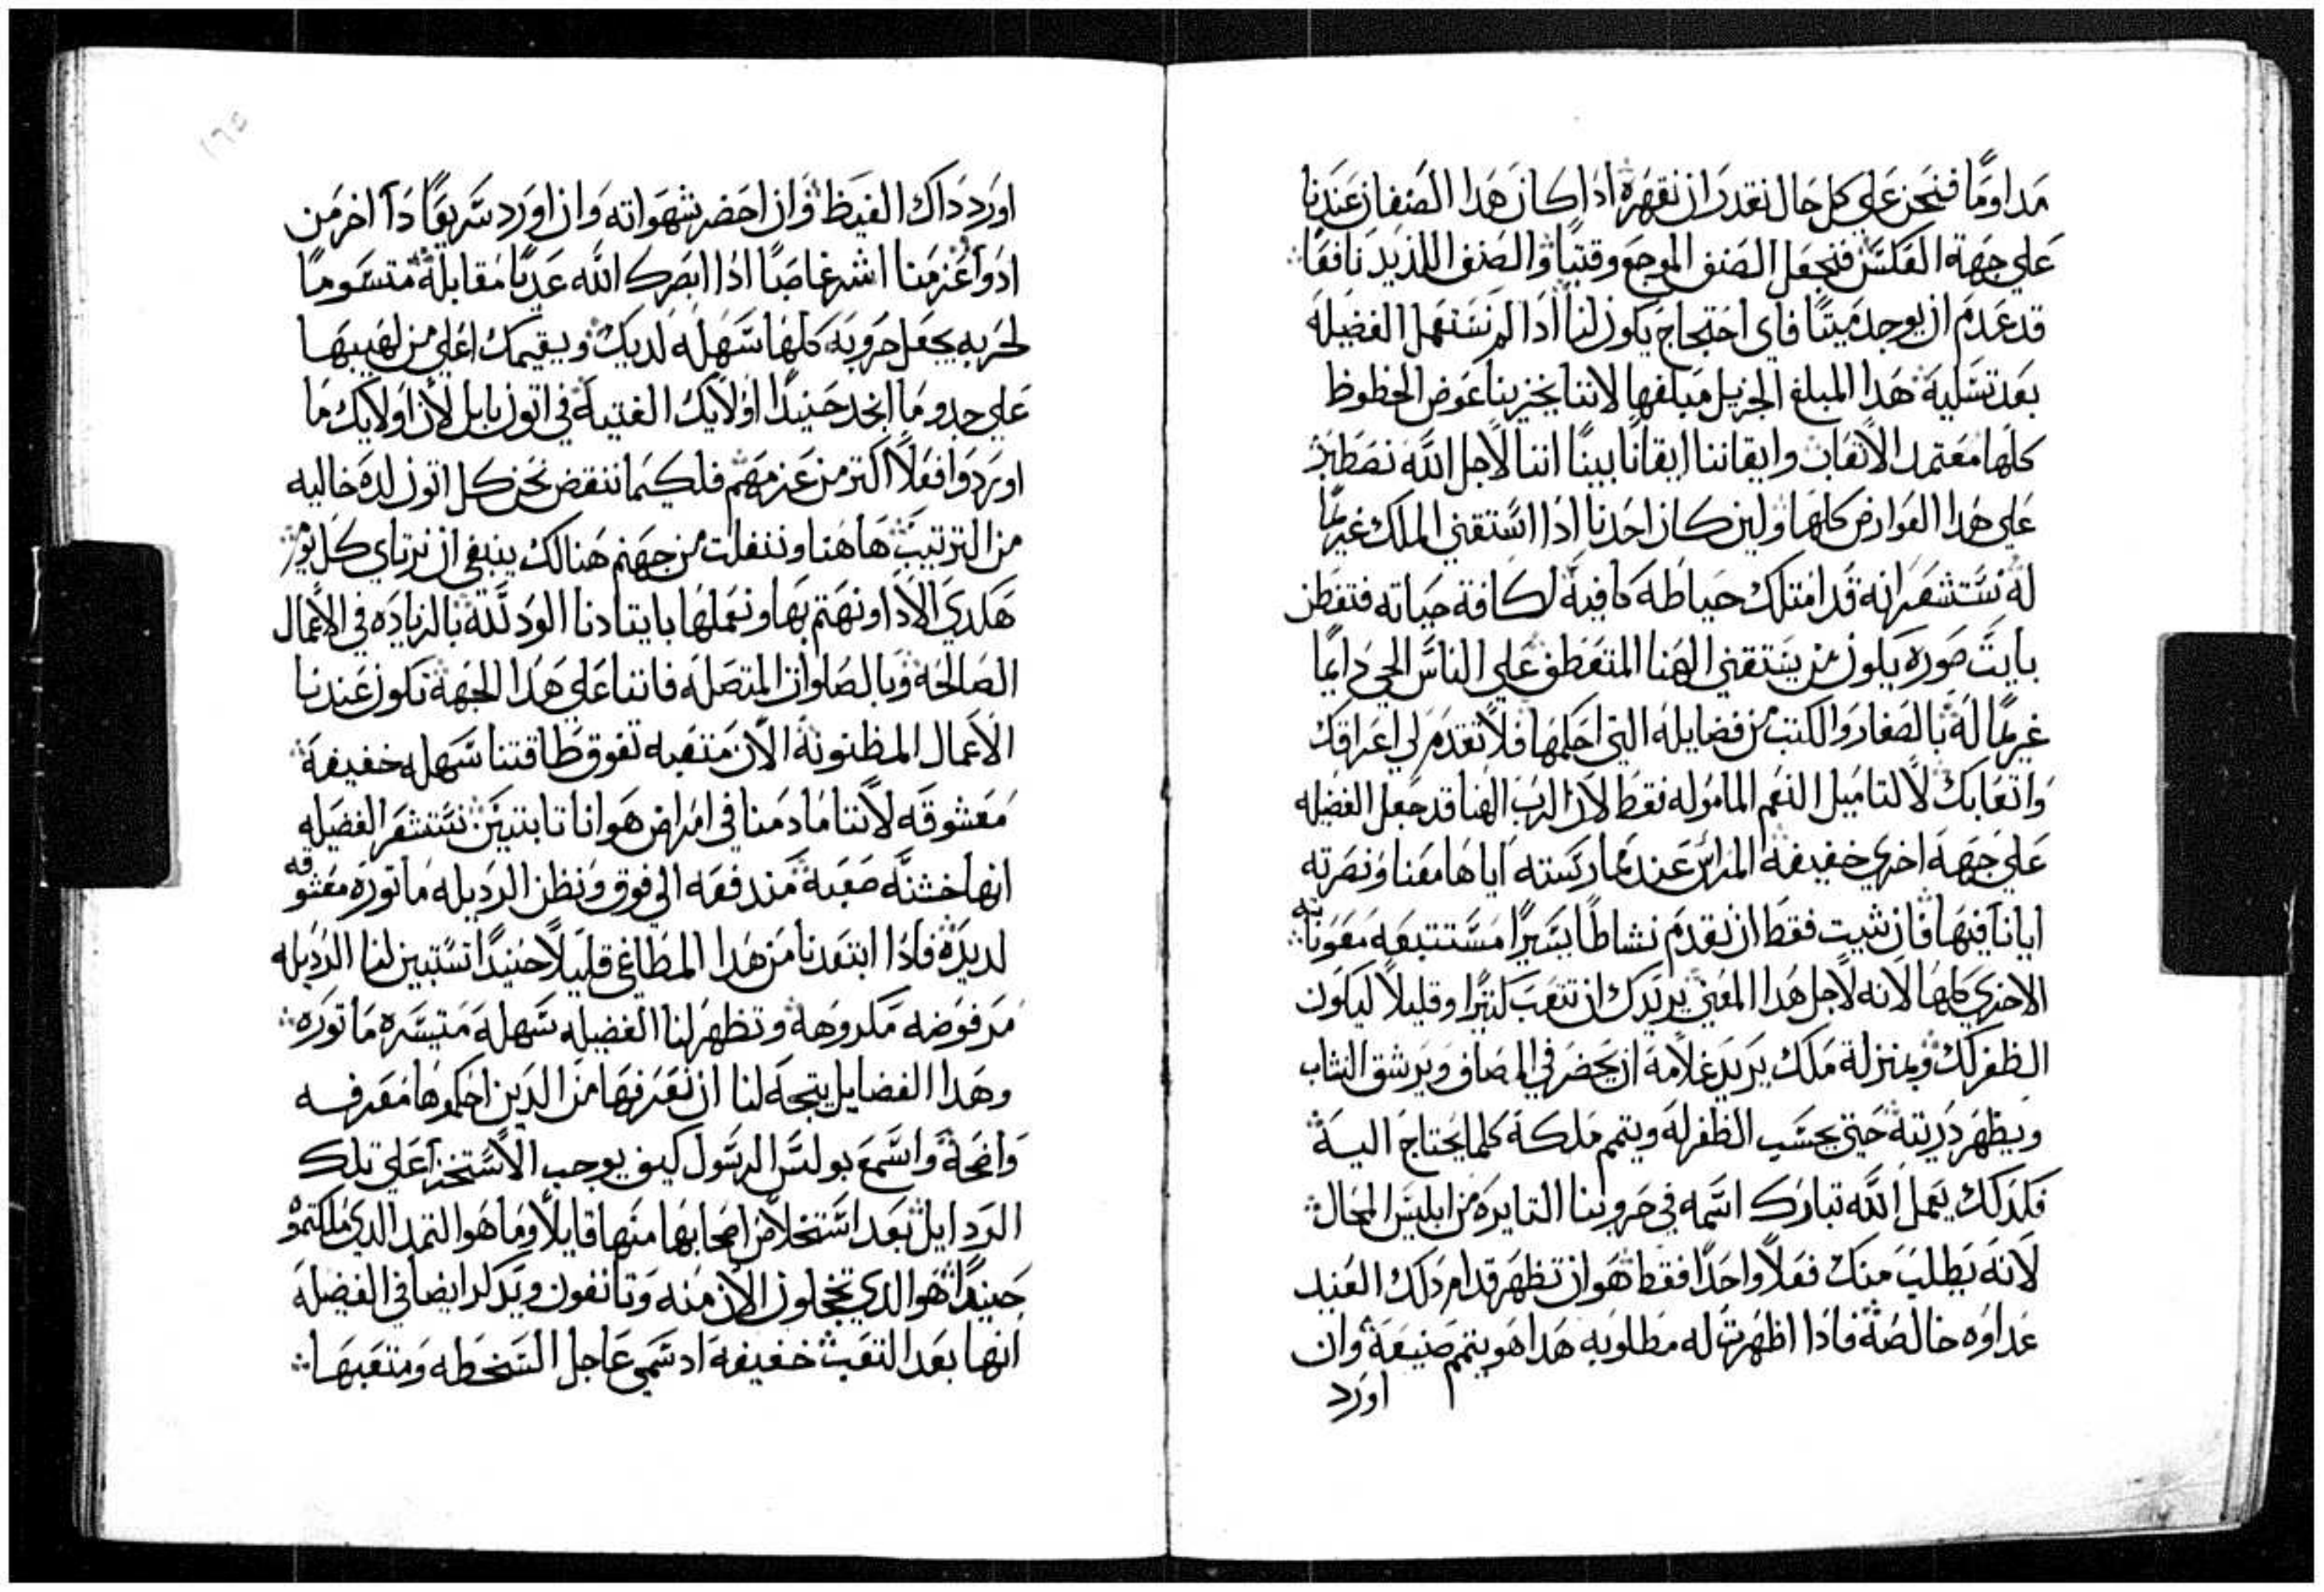 مداومًا فنحن على كل حال نقدر ان نقهره اذا كان هدا الصنفان عندنا
على جهة العكس فنجعل الصنف الموجع وقتيًا والصنف اللديد نافعًا
قد عدم ان يوجد ميتًا فاى احتجاج يكون لنا اذا لم نستعمل الفضيله
بعد تسلية هدا المبلغ الجزيل مبلغها لاننا يخزينا عوض الحظوظ
كلها معتمد الاتعاب وايقاننا ايقانًا بينًا اننا لاجل الله نصطبر
على هدا العوارض كلها ولين كان احدنا اذا استقنى الملك غريمًا
له نستشعر انه قد امتلك حياطه كافية لكافة حياته فتفطن
بايت صوره يكون من يستقنى الهنا المتعطف على الناس الحي دايمًا
غريمًا له بالصغار والكتب من فضايله التى احكمها فلا تقدم لى اعراقك
واتعابك لا لتاميل النعم الماموله فقط لان الرب الهنا قد جعل الفضيله
على جهة اخرى خفيفة المراس عند ممارسته اياها معنا ونصرته
ايانا فيها فان شيت فقط ان تقدم نشاطًا يسيرًا مستتبعه معونته
الاخرى كلها لانه لاجل هدا المعنى يريدك ان تتعب كتيرًا وقليلاً ليكون
الظفر لك وبمنزلة ملك يريد غلامه ان يحضر في المصاف ويرشق النشاب
ويظهر دريته حتى يحسب الظفر له ويتمم ملكه كلما يحتاج اليه
فكدلك يعمل الله تبارك اسمه في حروبنا التايره من ابليس المحال
لانه يطلب منك فعلاً واحدًا فقط هو ان تظهر قدام دلك العنيد
عداوه خالصة فاذا اظهرت له مطلوبه هدا هو يتمم صنيعة وان
اورد
١٦٥
اورد داك الغيظ وان احضر شهواته وان اورد سريعًا دآ اخر من
ادوآ عزمنا اشر غاصبًا اذا ابصرك الله عديًا مقابلة متسومًا
لحربه يجعل حروبه كلها سهله لديك ويقيمك اعلى من لهيبها
على حدو ما انجد حنيدًا اولايك الفتية في اتون بابل لان اولايك ما
اوردوا فعلاً اكتر من عزمهم فلكيما ننقض نحن كل اتون لده خاليه
من الترتيب هاهنا وننفلت من جهنم هنالك ينبغى ان نرتاى كل يوم
هكدى الادا ونهتم بها ونعملها بايتادنا الود لله بالزياده في الاعمال
الصالحة وبالصلوات المتصله فاننا على هدا الجهة تكون عندنا
الاعمال المظنونة الان متعبه تفوق طاقتنا سهله خفيفة
معشوقه لاننا مادمنا في امراض هوانا تابتين نستشعر الفضيله
انها خشنه صعبة مندفعه الى فوق ونظن الرديله ماتوره معشوقه
لديده فاذا ابتعدنا من هدا المطاغي قليلاً حنيدًا تستبين لنا الرديله
مرفوضه مكروهة وتظهر لنا الفضيله سهله متيسره ماتوره
وهدا الفضايل يتجه لنا ان نعرفها من الدين احكموها معرفه
واضحة واسمع بولس الرسول كيف يوجب الاستخزآ على تلك
الردايل بعد استخلاص اصحابها منها قايلاً وما هو التمر الدى ملكتموه
حنيدًا هو الدى تخجلون الان منه وتانفون ويدكر ايضا في الفضيله
انها بعد التعب خفيفة اد سمى عاجل السخطه ومتعبها